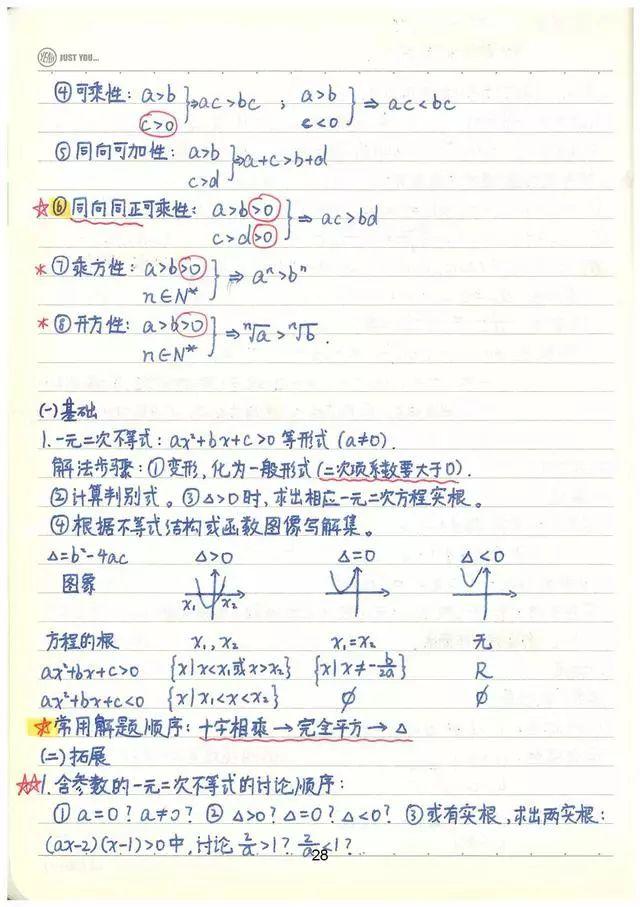 YEAH JUST YOU...
④可乘性: a>b c>0 }⇒ac>bc ; a>b c<0 }⇒ac<bc
⑤同向可加性: a>b c>d }⇒a+c>b+d
☆⑥同向同正可乘性: a>b>0 c>d>0 }⇒ac>bd
*⑦乘方性: a>b>0 n∈N* }⇒aⁿ>bⁿ
*⑧开方性: a>b>0 n∈N* }⇒ⁿ√a>ⁿ√b.
(一)基础
1.一元二次不等式: ax²+bx+c>0等形式(a≠0).
解法步骤: ①变形,化为一般形式(二次项系数要大于0).
②计算判别式。③△>0时,求出相应一元二次方程实根。
④根据不等式结构或函数图像写解集。
△=b²-4ac △>0 △=0 △<0
图象 x₁ x₂
方程的根 x₁,x₂ x₁=x₂ 无
ax²+bx+c>0 {x|x<x₁或x>x₂} {x|x≠-b/2a} R
ax²+bx+c<0 {x|x₁<x<x₂} ∅ ∅
☆常用解题顺序: 十字相乘→完全平方→△
(二)拓展
☆☆1.含参数的一元二次不等式的讨论顺序:
①a=0?a≠0? ②△>0?△=0?△<0? ③或有实根,求出两实根:
(ax-2)(x-1)>0中,讨论2/a>1? 2/a<1?
28